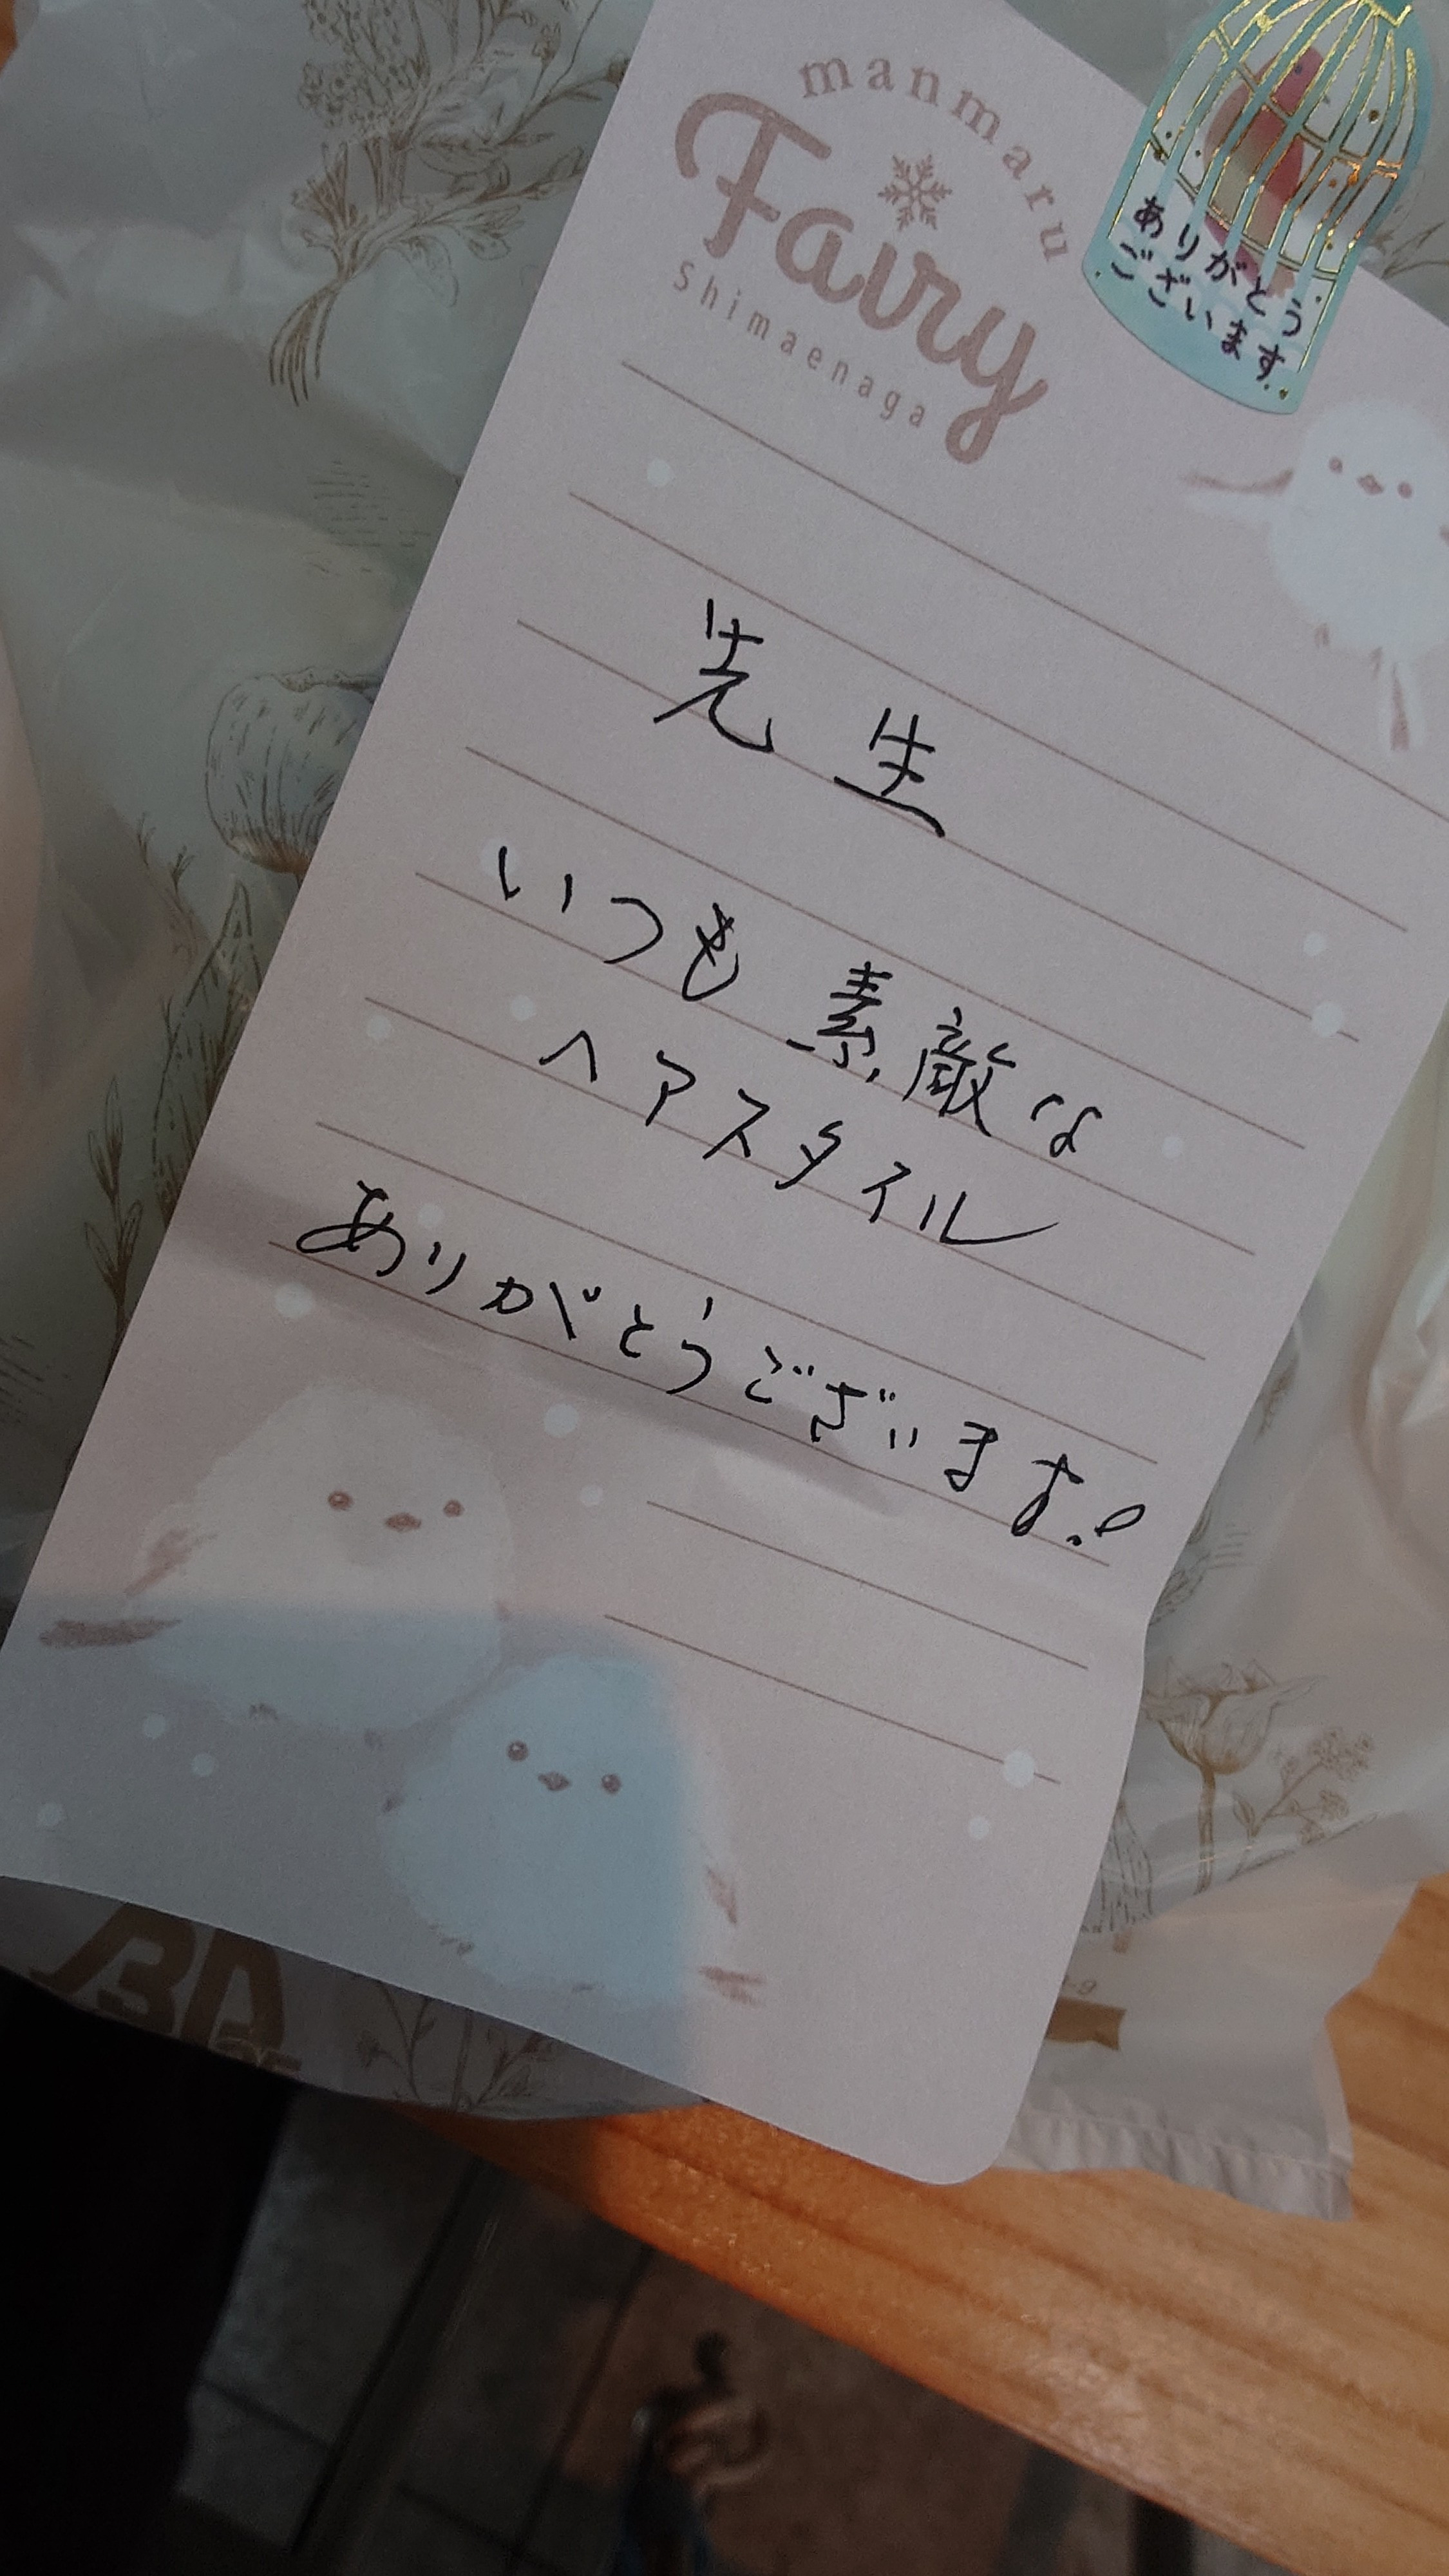 manmaru
Fairy
Shimaenaga
ありがとう
ございます
先生
いつも素敵な
ヘアスタイル
ありがとうございます!